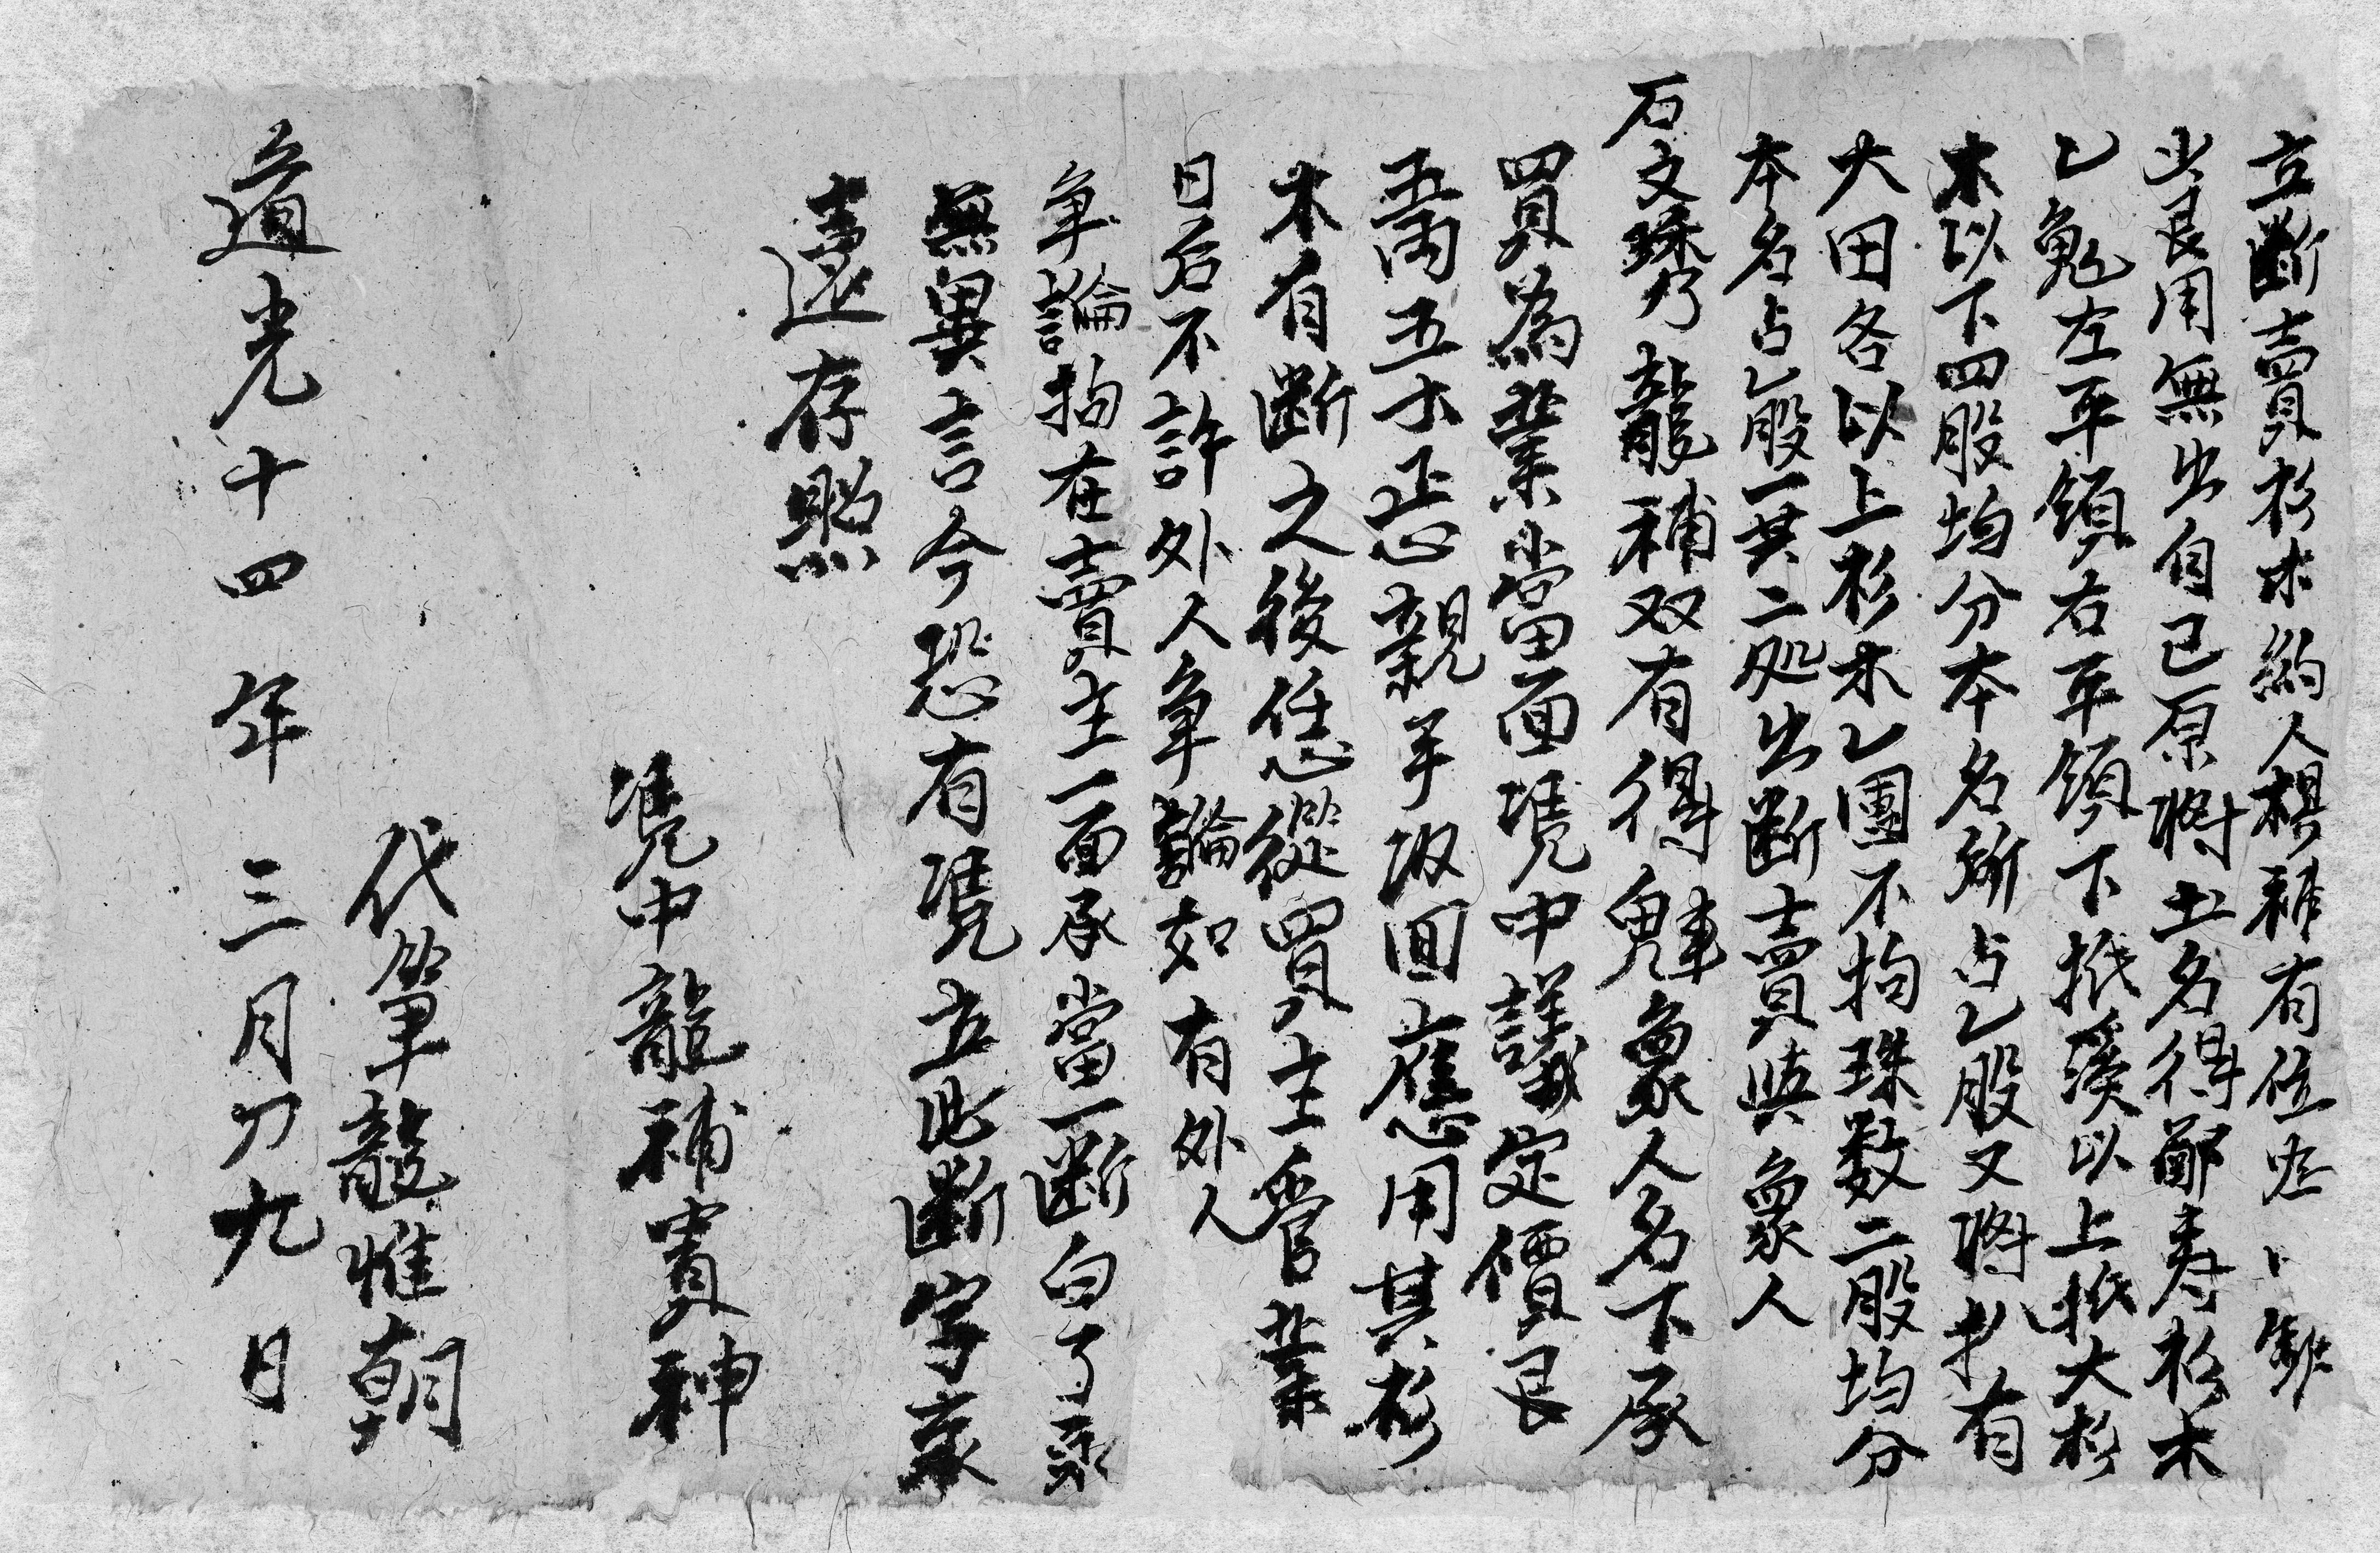 立断賣杉木約人楊補有位坐口缺
少艮用無出自己原将土名得鄙寿杉木
乙塊左平領右平領下抵溪以上抵大杉
木以下四股均分本名所占乙股又将扌有
大田各以上杉木乙團不拘珠数二股均分
本名占乙股一共二処出断賣與衆人
石文琇乃龍補双有得魁衆人名下承
買為業當面凴中議定價艮
五两五才正親手收回應用其杉
木有断之後恁從買主管業
日后不許外人争論如有外人
争論拘在賣主一面承當一断白了永
無異言今恐有凴立此断字永
遠存照
凴中龍補賓神
代筆龍惟朝
道光十四年三月初九日